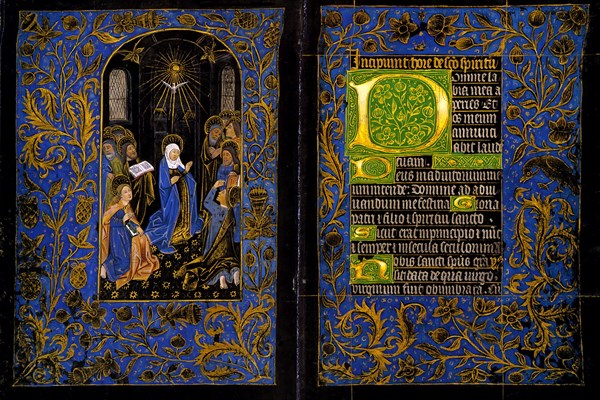 Incipiunt hore de sco spiritu
Domine la
bia mea a
peries Et
os meum
annunti
abit laude
tuam.
Deus in adiutorium me
um intende. Domine ad adiu
uandum me festina Gloria
patri et filio et spiritui sancto
Sicut erat in principio et nuc
et semper et in secula seculorum
Nobis sancti spus gra
sit data de qua virgo
virginum fuit obumbrata.